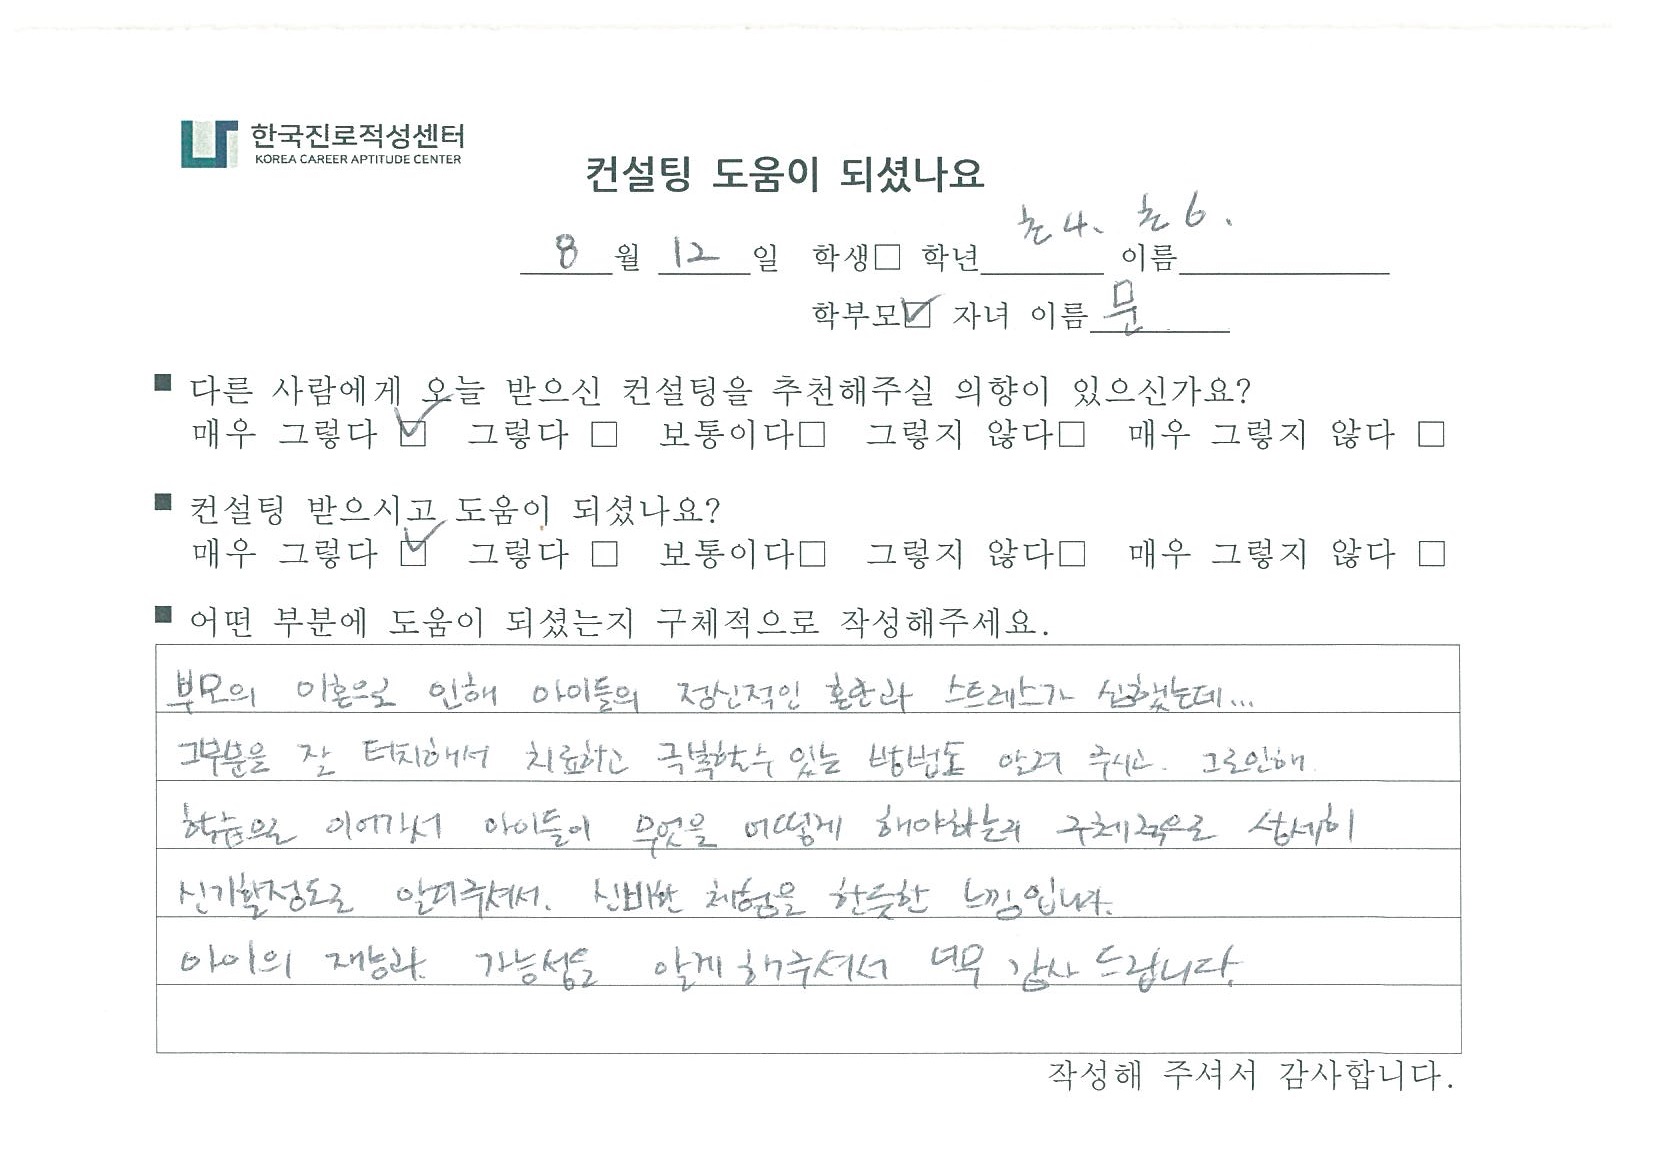 한국진로적성센터
KOREA CAREER APTITUDE CENTER
컨설팅 도움이 되셨나요
초4. 초6.
8월 12일 학생□ 학년 이름
학부모☑ 자녀 이름 문
■ 다른 사람에게 오늘 받으신 컨설팅을 추천해주실 의향이 있으신가요?
매우 그렇다 ☑ 그렇다 □ 보통이다□ 그렇지 않다□ 매우 그렇지 않다 □
■ 컨설팅 받으시고 도움이 되셨나요?
매우 그렇다 ☑ 그렇다 □ 보통이다□ 그렇지 않다□ 매우 그렇지 않다 □
■ 어떤 부분에 도움이 되셨는지 구체적으로 작성해주세요.
부모의 이혼으로 인해 아이들의 정신적인 혼란과 스트레스가 심했는데...
그부분을 잘 터치해서 치료하고 극복할수 있는 방법도 알려 주시고. 그로인해
학습으로 이어가서 아이들이 무엇을 어떻게 해야하는지 구체적으로 상세히
신기할정도로 알려주셔서. 신비한 체험을 한듯한 느낌입니다.
아이의 재능과 가능성을 알게 해주셔서 너무 감사 드립니다.
작성해 주셔서 감사합니다.